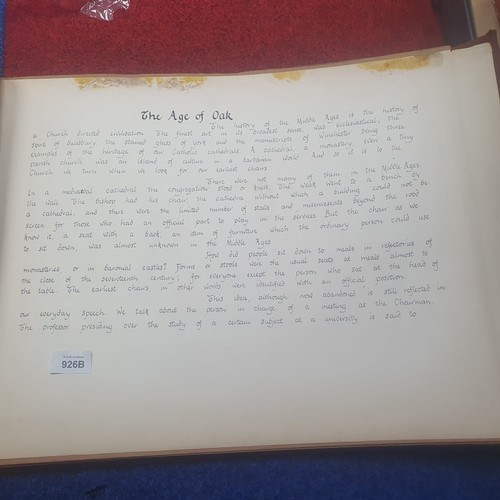 The Age of Oak
The history of the Middle Ages is the history of
a Church directed civilisation. The finest art in its greatest sense, was ecclesiastical; the
spire of Salisbury, the stained glass of York and the manuscripts of Winchester being three
examples of the heritage of our Catholic cathedrals. A cathedral, a monastery, even a tiny
parish church was an island of culture in a barbarian world. And so it is to the
Church we turn when we look for our earliest chairs.
There were not many of them in the Middle Ages.
In a mediaeval cathedral the congregation stood or knelt. The weak went to a bench by
the wall. The bishop had his chair, the cathedra without which a building could not be
a cathedral, and there were the limited number of stalls and misericords beyond the rood
screen for those who had an official part to play in the services. But the chair as we
know it, a seat with a back, an item of furniture which the ordinary person could use
to sit down, was almost unknown in the Middle Ages.
How did people sit down to meals in refectories of
monasteries or in baronial castles? Forms or stools were the usual seats at meals almost to
the close of the seventeenth century; for everyone except the person who sat at the head of
the table. The earliest chairs, in other words were identified with an official position.
This idea, although now abandoned is still reflected in
our everyday speech. We talk about the person in charge of a meeting as the Chairman.
The professor presiding over the study of a certain subject at a university is said to
926B